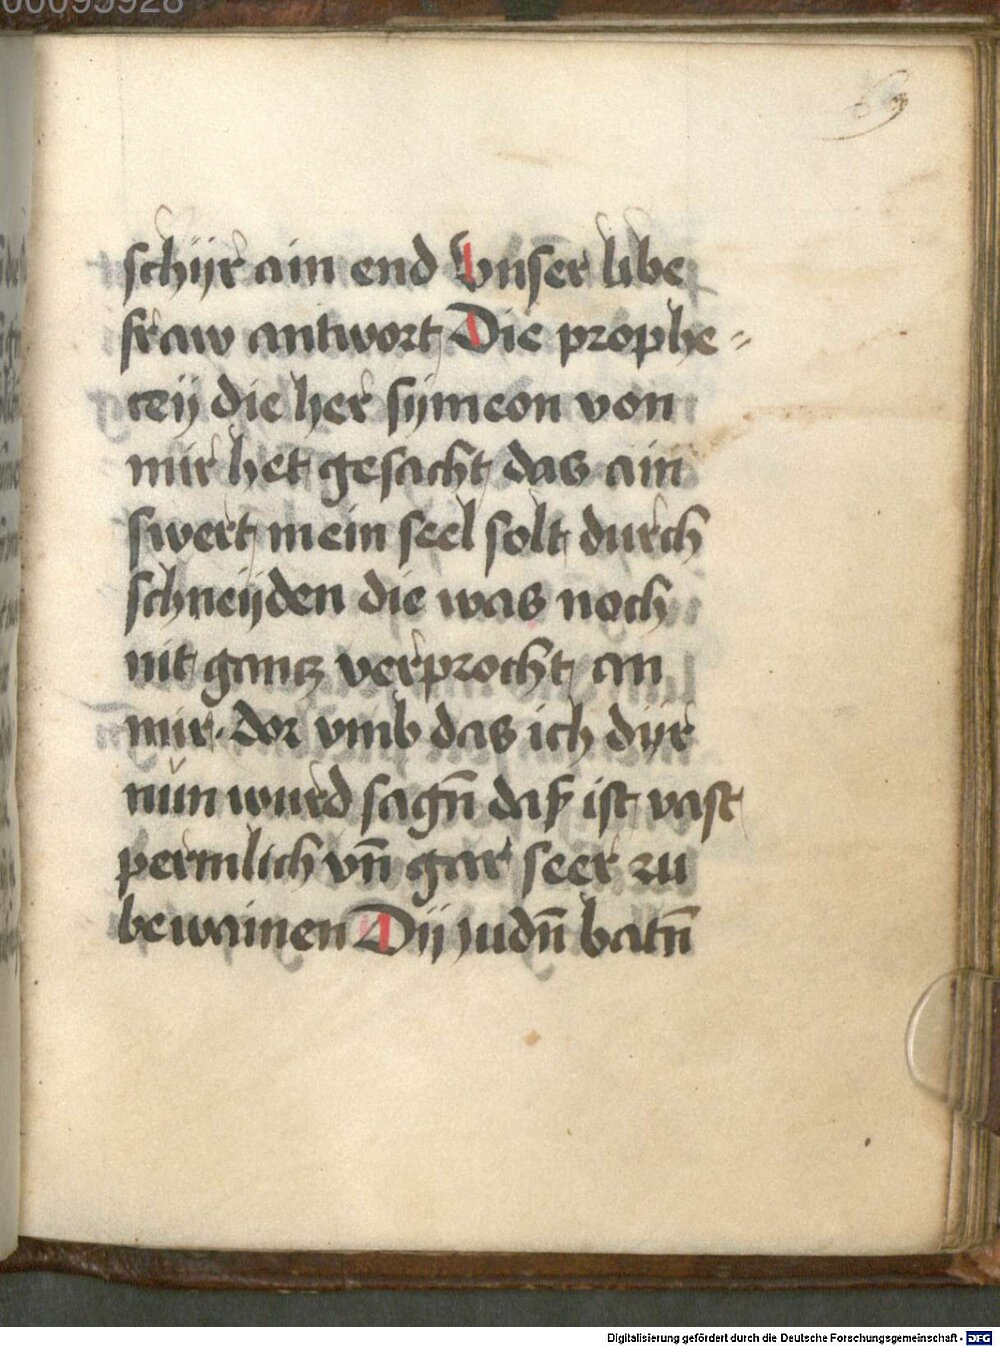 00095928
69
schijr ain end Vnser libe
fraw antwort Die prophe=
ceij die her sijmeon von
mir het gesacht das ain
swert mein seel solt durch
schneijden die was noch
nit gantz verprocht an
mir. dor vmb das ich dijr
nun wurd sagn̄ daß ist vast
permlich vn̄ gar seer zu
bewainen Dij judn̄ batn̄
Digitalisierung gefördert durch die Deutsche Forschungsgemeinschaft - DFG